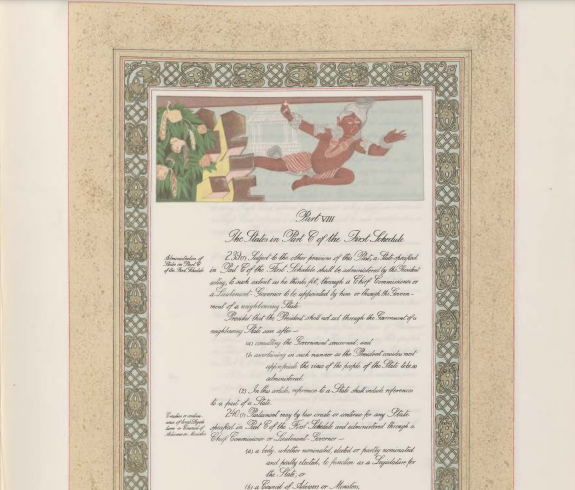 Part VIII
The States in Part C of the First Schedule
Administration of
States in Part C
of the First Schedule
239.(1) Subject to the other provisions of this Part, a State specified
in Part C of the First Schedule shall be administered by the President
acting, to such extent as he thinks fit, through a Chief Commissioner or
a Lieutenant-Governor to be appointed by him or through the Govern-
ment of a neighbouring State:
Provided that the President shall not act through the Government of a
neighbouring State save after—
(a) consulting the Government concerned; and
(b) ascertaining in such manner as the President considers most
appropriate the views of the people of the State to be so
administered.
(2) In this article, references to a State shall include references
to a part of a State.
Creation or contin-
uance of local Legisla-
tures or Council of
Advisers or Ministers
240.(1) Parliament may by law create or continue for any State
specified in Part C of the First Schedule and administered through a
Chief Commissioner or Lieutenant-Governor—
(a) a body, whether nominated, elected or partly nominated
and partly elected, to function as a Legislature for
the State; or
(b) a Council of Advisers or Ministers,